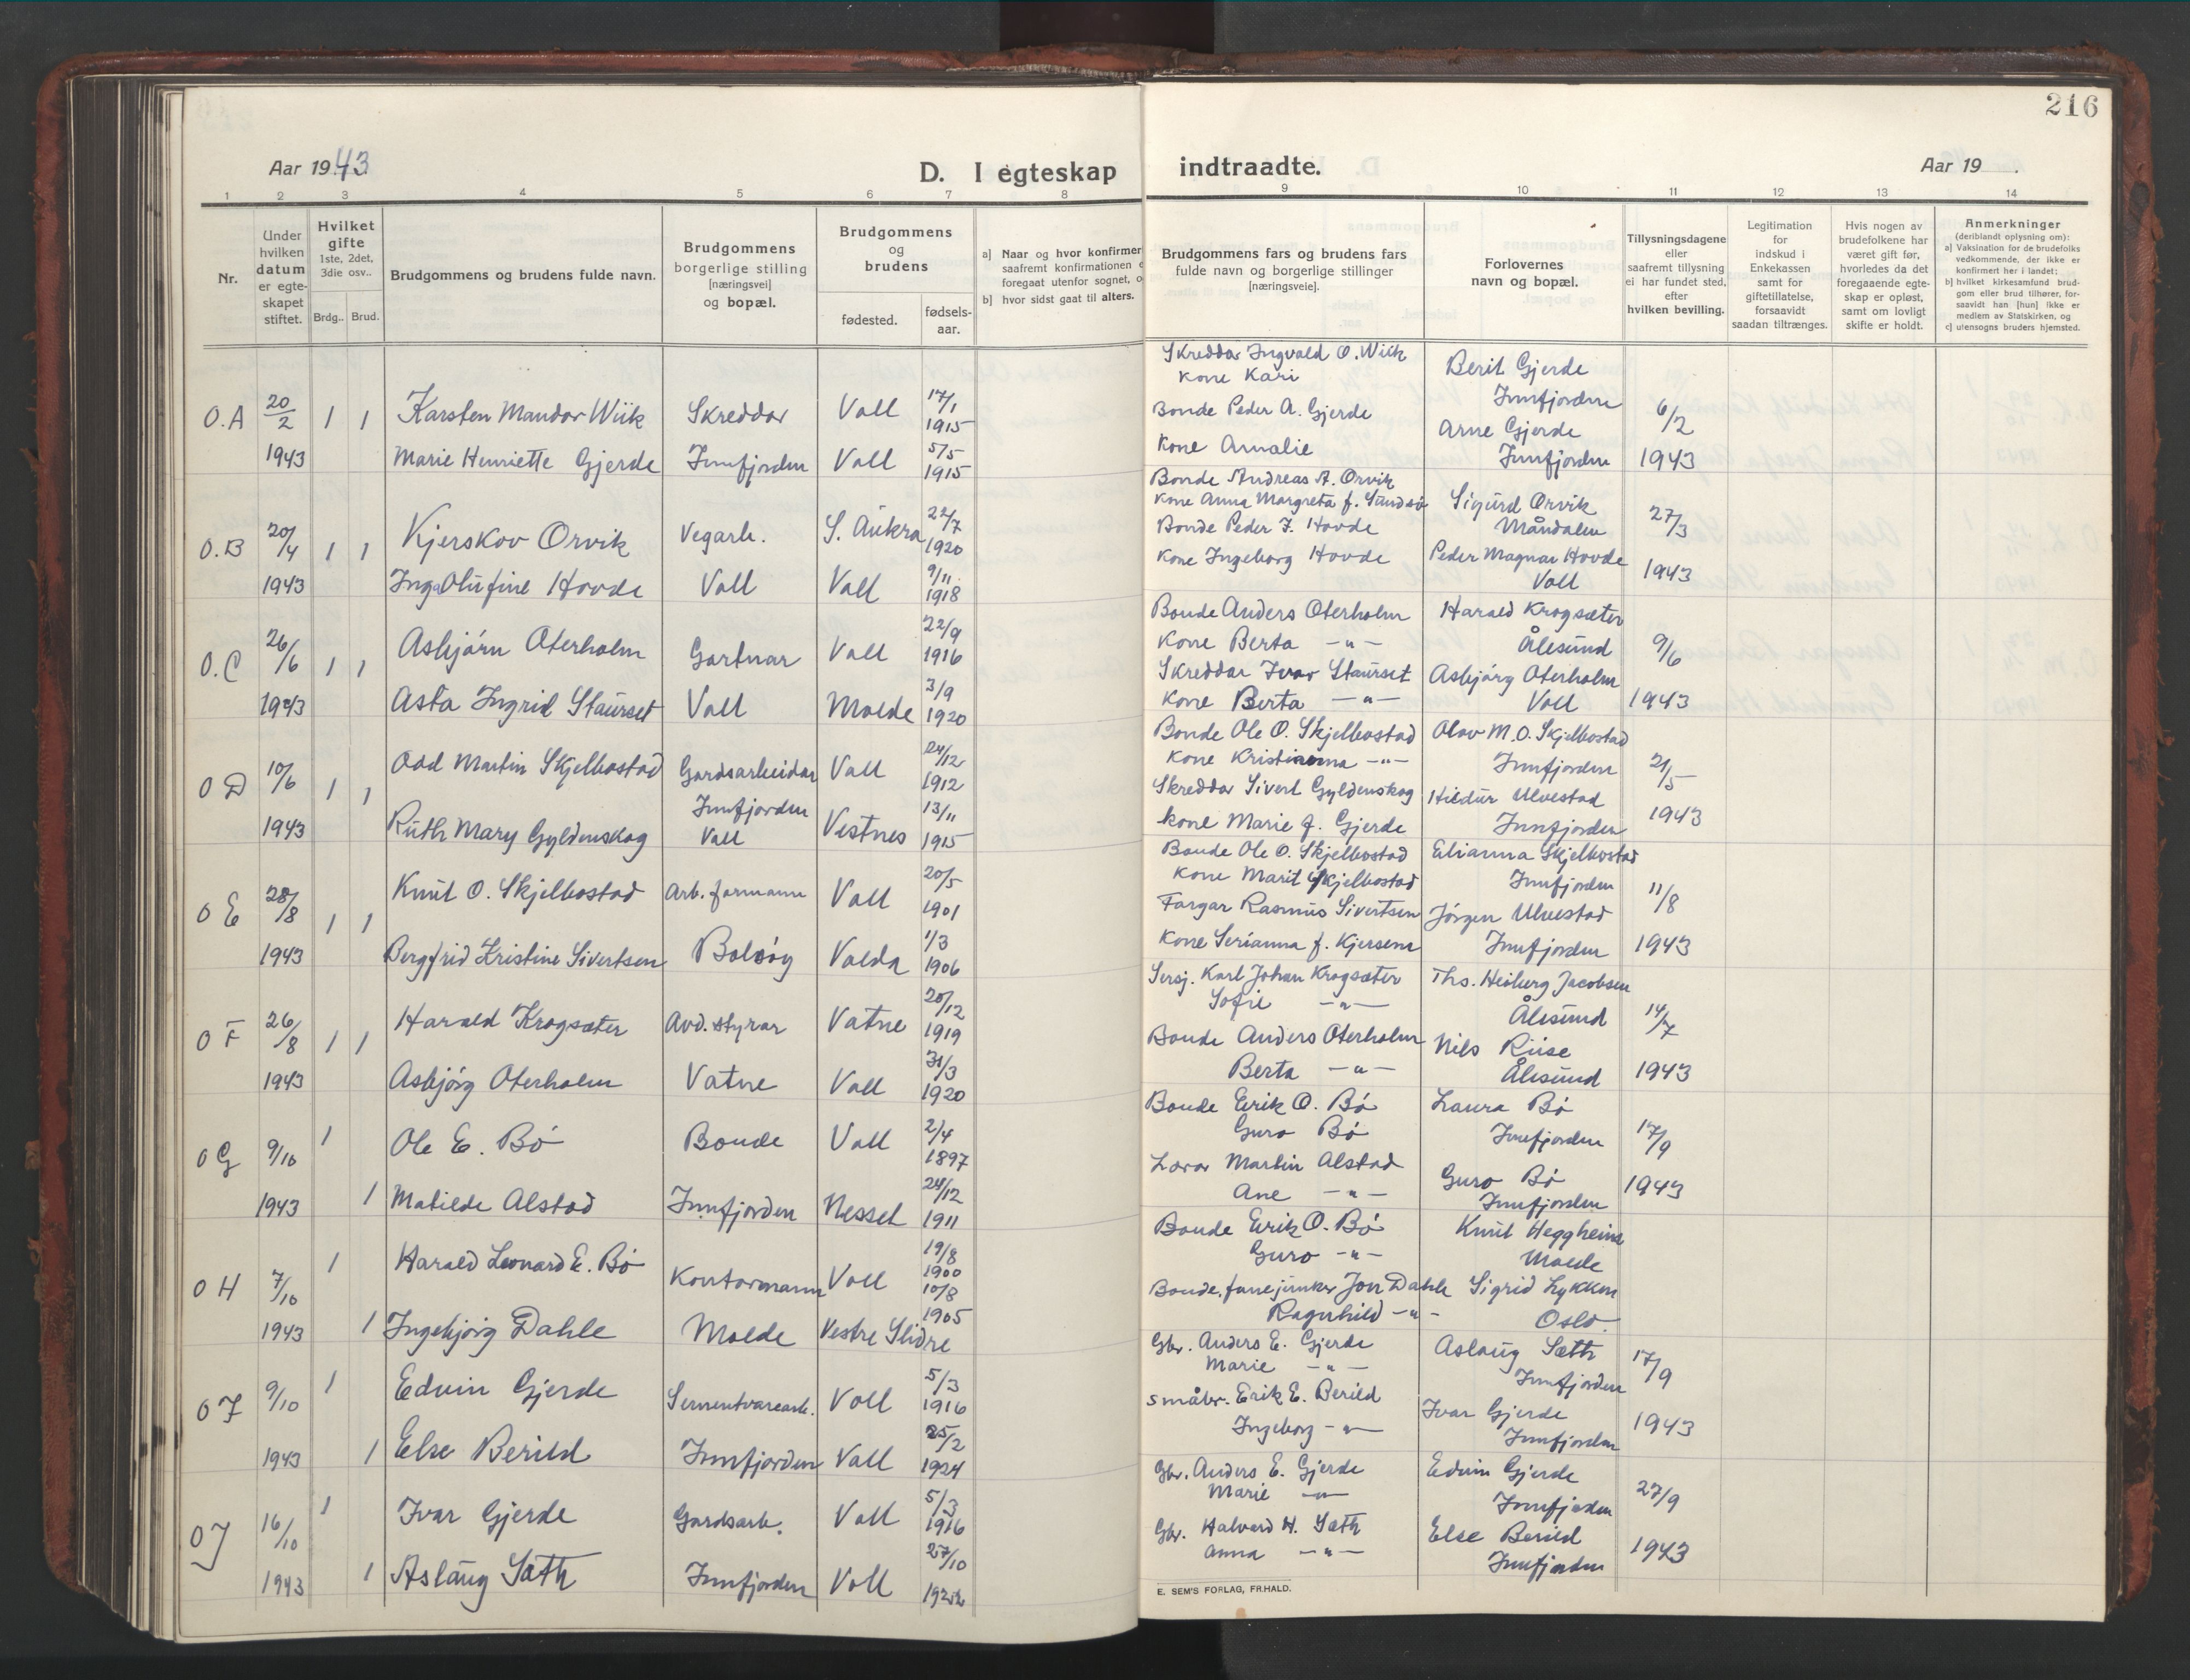 216
Aar 1943
D. I egteskap indtraadte.
Aar 19 .
1 2 3 4 5 6 7 8 9 10 11 12 13 14
Nr.
Under
hvilken
datum
er egte-
skapet
stiftet.
Hvilket
gifte
1ste, 2det,
3die osv..
Brdg.. Brud.
Brudgommens og brudens fulde navn.
Brudgommens
borgerlige stilling
[næringsvei]
og bopæl.
Brudgommens
og
brudens
fødested.
fødsels-
aar.
a] Naar og hvor konfirmer
saafremt konfirmationen
foregaat utenfor sognet, o
b] hvor sidst gaat til alters.
Brudgommens fars og brudens fars
fulde navn og borgerlige stillinger
[næringsveie].
Forlovernes
navn og bopæl.
Tillysningsdagene
eller
saafremt tillysning
ei har fundet sted,
efter
hvilken bevilling.
Legitimation
for
indskud i
Enkekassen
samt for
giftetillatelse,
forsaavidt
saadan tiltrænges.
Hvis nogen av
brudefolkene har
været gift før,
hvorledes da det
foregaaende egte-
skap er opløst,
samt om lovligt
skifte er holdt.
Anmerkninger
(deriblandt oplysning om):
a) Vaksination før de brudefolks
vedkommende, der ikke er
konfirmert her i landet;
b] hvilket kirkesamfund brud-
gom eller brud tilhører, for-
saavidt han [hun] ikke er
medlem av Statskirken, og
c] utensogns bruders hjemsted.
O.A 20/2 1 1 Karsten Mandor Wiik Skreddar Voll 17/1 1915
1943 Marie Henriette Gjerde Innfjorden Voll 5/5 1915
Skreddar Ingvald O. Wiik
Kone Kari
Bonde Peder A. Gjerde
Kone Amalie
Berit Gjerde
Innfjorden
Arne Gjerde
Innfjorden
6/2
1943
O.B 20/4 1 1 Kjerskov Orvik Vegarb. S. Aukra 22/7 1920
1943 Inga Olufine Hovde Voll Voll 9/11 1918
Bonde Andreas A. Orvik
Kone Anna Margreta f. Sundsbø
Bonde Peder J. Hovde
Kone Ingeborg Hovde
Sigurd Orvik
Måndalen
Peder Magnar Hovde
Voll
27/3
1943
O.C 26/6 1 1 Asbjørn Oterholm Gartnar Voll 22/9 1916
1943 Asta Ingrid Staurset Voll Molde 3/9 1920
Bonde Anders Oterholm
Kone Berta -"-
Skreddar Ivar Staurset
Kone Berta -"-
Harald Krogsæter
Ålesund
Asbjörg Oterholm
Voll
9/6
1943
O D 10/6 1 1 Odd Martin Skjelbostad Gardsarbeidar Voll 24/12 1912
Innfjorden
1943 Ruth Mary Gyldenskog Voll Vestnes 13/11 1915
Bonde Ole O. Skjelbostad
Kone Kristianna -"-
Skreddar Sivert Gyldenskog
kone Marie f. Gjerde
Olav M. O. Skjelbostad
Innfjorden
Hildur Ulvestad
Innfjorden
21/5
1943
O E 28/8 1 1 Knut O. Skjelbostad Arb. formann Voll 20/5 1901
1943 Bergfrid Kristine Sivertsen Bolsöy Volda 1/3 1906
Bonde Ole O. Skjelbostad
Kone Marit Skjelbostad
Fargar Rasmus Sivertsen
Kone Serianna f. Kjersem
Elianna Skjelbostad
Innfjorden
Jörgen Ulvestad
Innfjorden
11/8
1943
O F 26/8 1 1 Harald Krogsæter Avd. styrar Vatne 20/12 1919
1943 Asbjörg Oterholm Vatne Voll 31/3 1920
Sersj. Karl Johan Krogsæter
Sofie -"-
Bonde Anders Oterholm
Berta -"-
Ths. Heiberg Jacobsen
Ålesund
Nils Riise
Ålesund
14/7
1943
O G 9/10 1 Ole E. Bö Bonde Voll 2/4 1897
1943 1 Matilde Alstad Innfjorden Nesset 24/12 1911
Bonde Eirik O. Bö
Guro Bö
Lærar Martin Alstad
Ane -"-
Laura Bö
Innfjorden
Guro Bö
Innfjorden
17/9
1943
O H 7/10 1 Harald Leonard E. Bö Kontormann Voll 19/8 1900
1943 1 Ingebjörg Dahle Molde Vestre Slidre 10/8 1905
Bonde Eirik O. Bö
Guro -"-
Bonde, fanejunker Jon Dahle
Ragnhild -"-
Knut Heggheim
Molde
Sigrid Lykken
Oslo.
O I 9/10 1 Edvin Gjerde Sementvarearb. Voll 5/3 1916
1943 1 Else Berild Innfjorden Voll 25/2 1924
Gbr. Anders E. Gjerde
Marie -"-
småbr. Erik E. Berild
Ingeborg -"-
Aslaug Sæth
Innfjorden
Ivar Gjerde
Innfjorden
17/9
1943
O J 16/10 1 Ivar Gjerde Gardsarb. Voll 5/3 1916
1943 1 Aslaug Sæth Innfjorden Voll 27/10
Gbr. Anders E. Gjerde
Marie -"-
Gbr. Halvard H. Sæth
Anna -"-
Edvin Gjerde
Innfjorden
Else Berild
Innfjorden
27/9
1943
E. SEM'S FORLAG, FR.HALD.